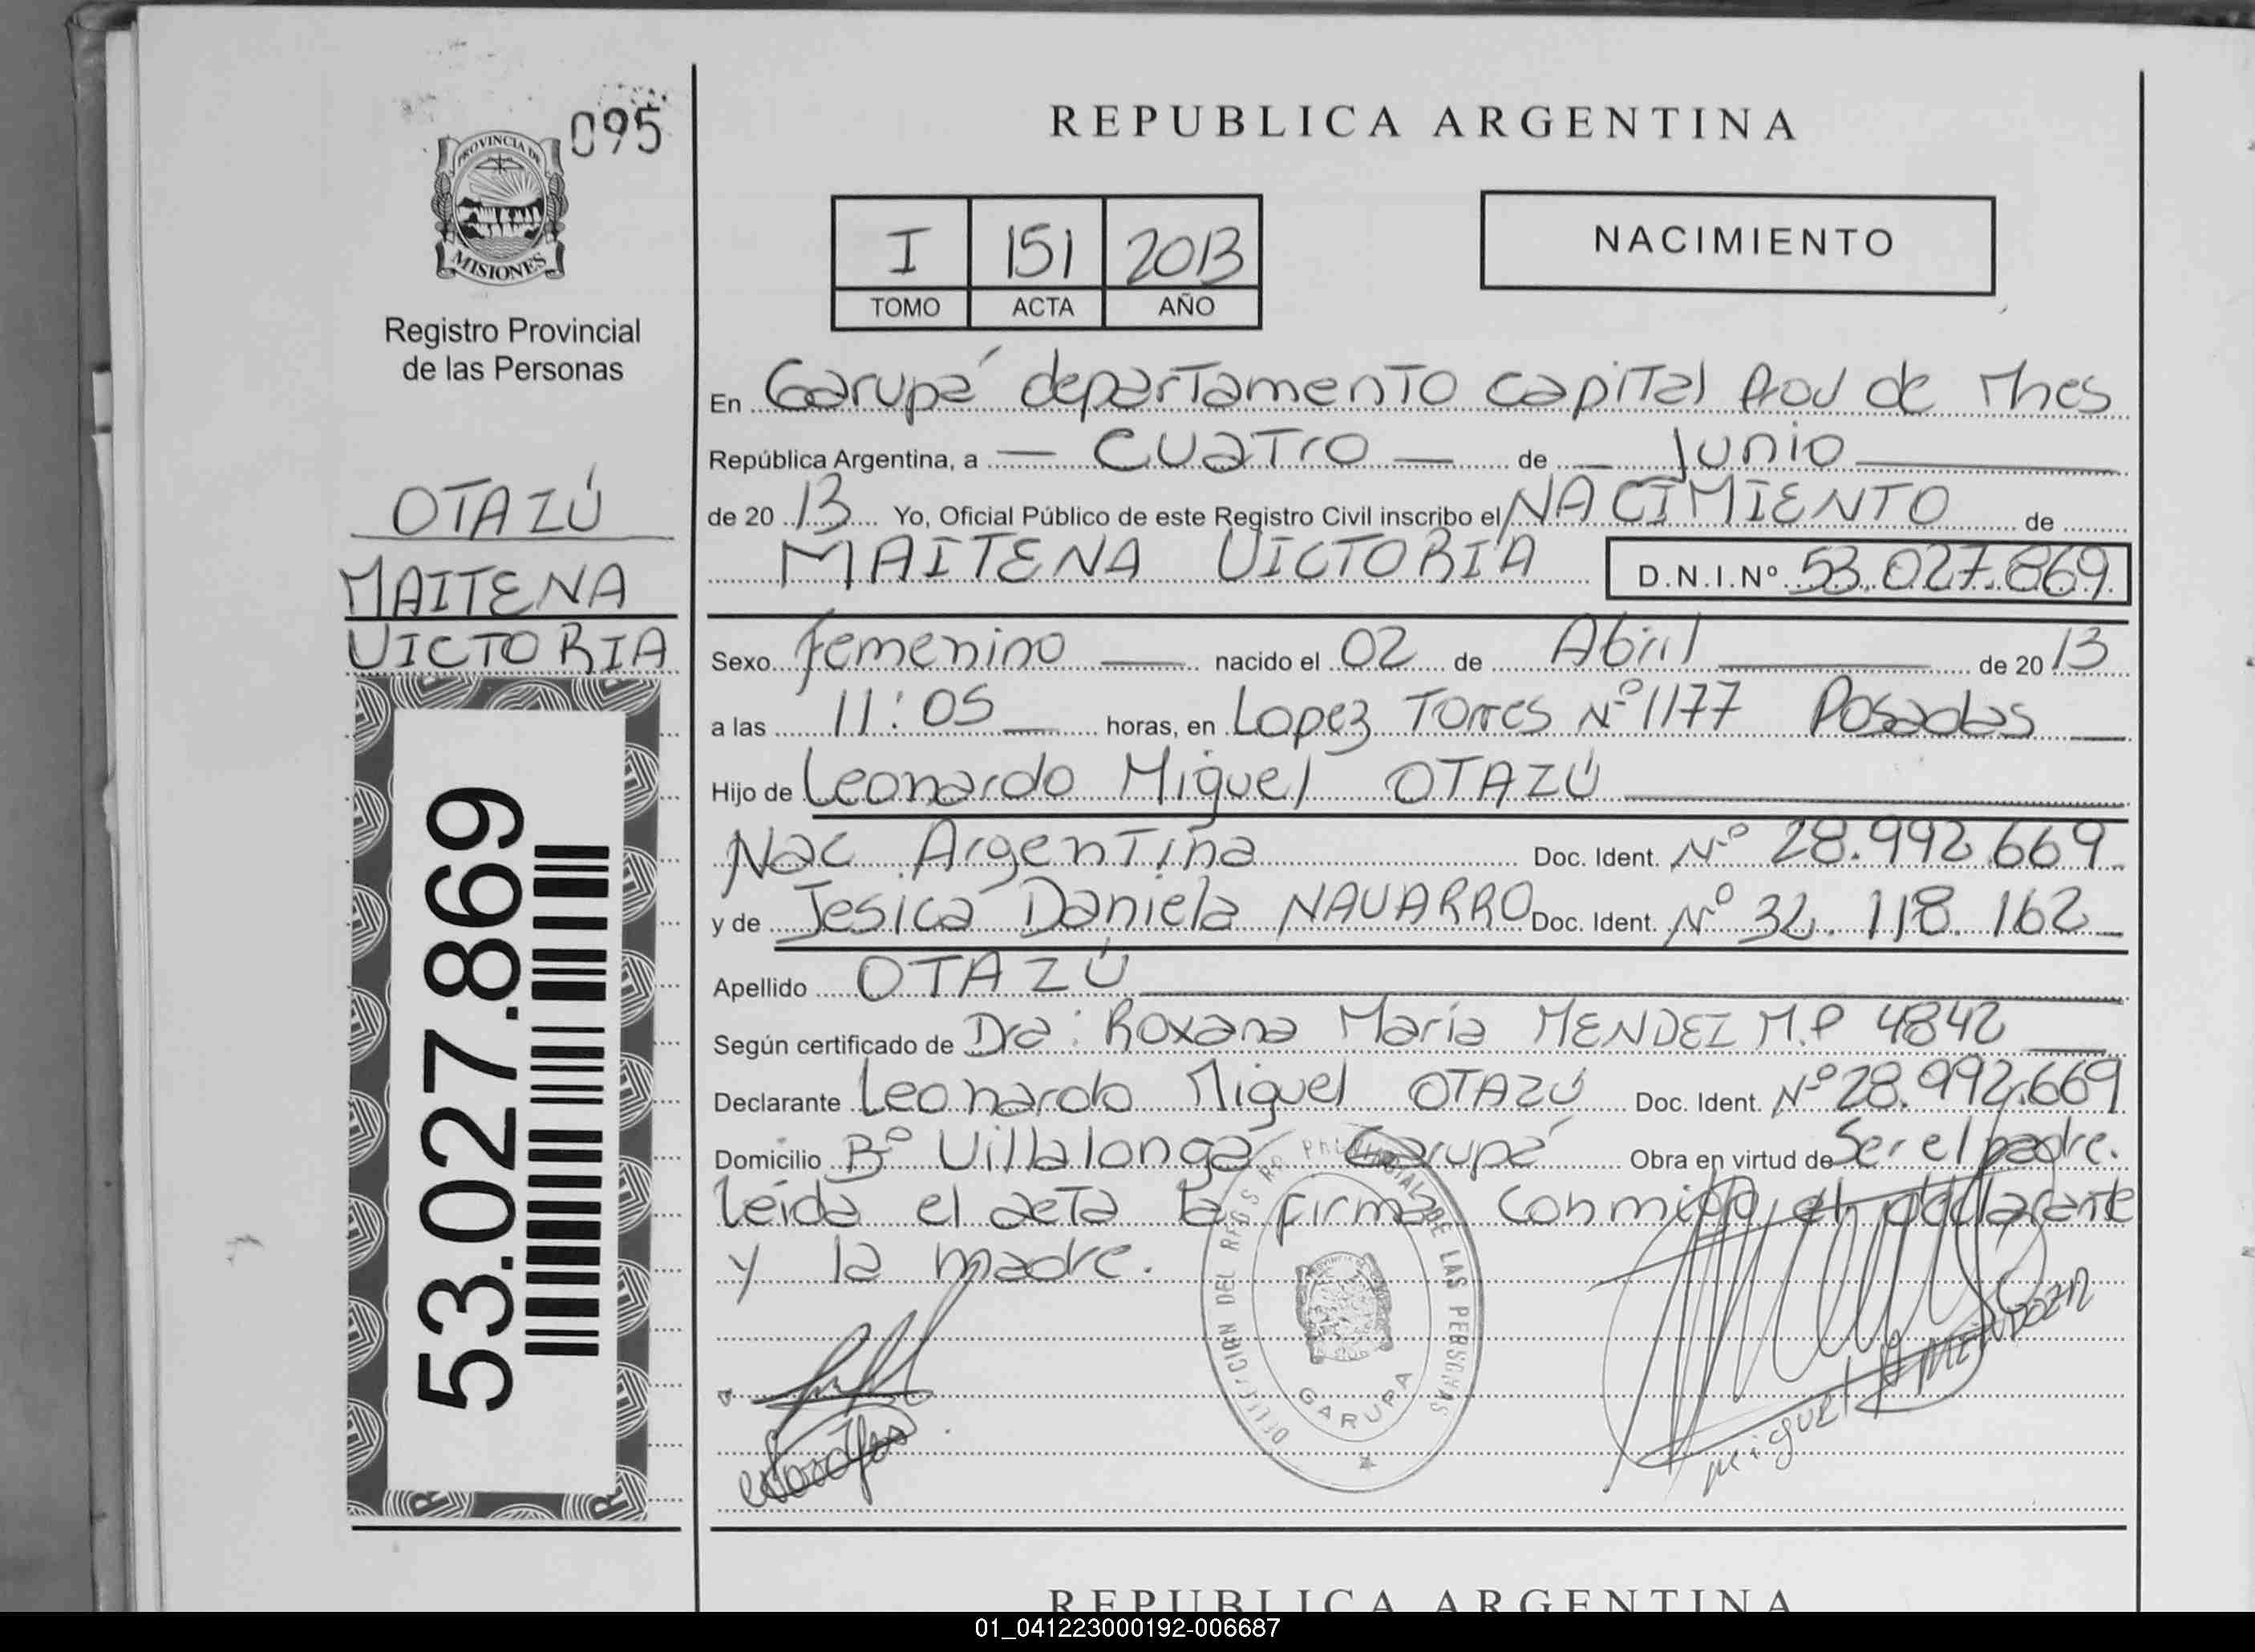 095
PROVINCIA DE
MISIONES
Registro Provincial
de las Personas
OTAZÚ
MAITENA
VICTORIA
53.027.869
REPUBLICA ARGENTINA
I 151 2013
TOMO ACTA AÑO
NACIMIENTO
En Garupá departamento capital Prov de Mnes
República Argentina, a — CUATRO — de — Junio —
de 20 13 Yo, Oficial Público de este Registro Civil inscribo el NACIMIENTO de
MAITENA VICTORIA D.N.I.Nº 53.027.869
Sexo femenino — nacido el 02 de Abril — de 20 13
a las 11:05 — horas, en Lopez Torres Nº 1177 Posadas —
Hijo de Leonardo Miguel OTAZÚ —
Nac Argentina Doc. Ident. Nº 28.992.669
y de Jesica Daniela NAVARRO Doc. Ident. Nº 32.118.162
Apellido OTAZÚ —
Según certificado de Dra: Roxana María MENDEZ M.P 4842 —
Declarante Leonardo Miguel OTAZÚ Doc. Ident. Nº 28.992.669
Domicilio Bº Villalonga Garupá Obra en virtud de Ser el padre.
leída el acta la firma conmigo el declarante
y la madre.
DEL REGISTRO PROVINCIAL DE LAS PERSONAS
GARUPA
Miguel A MENDOZA
REPUBLICA ARGENTINA
01_041223000192-006687